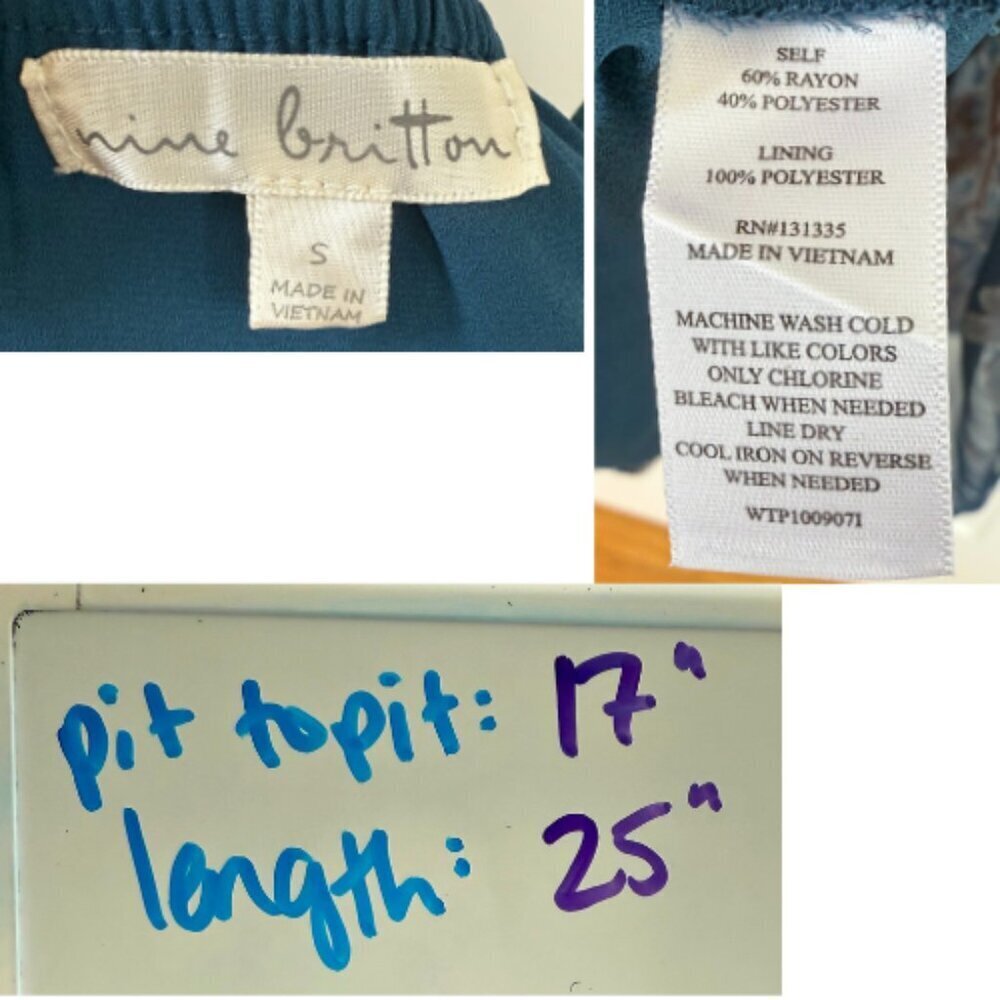 nine britton
S
MADE IN
VIETNAM
SELF
60% RAYON
40% POLYESTER
LINING
100% POLYESTER
RN#131335
MADE IN VIETNAM
MACHINE WASH COLD
WITH LIKE COLORS
ONLY CHLORINE
BLEACH WHEN NEEDED
LINE DRY
COOL IRON ON REVERSE
WHEN NEEDED
WTP1009071
pit to pit: 17"
length: 25"